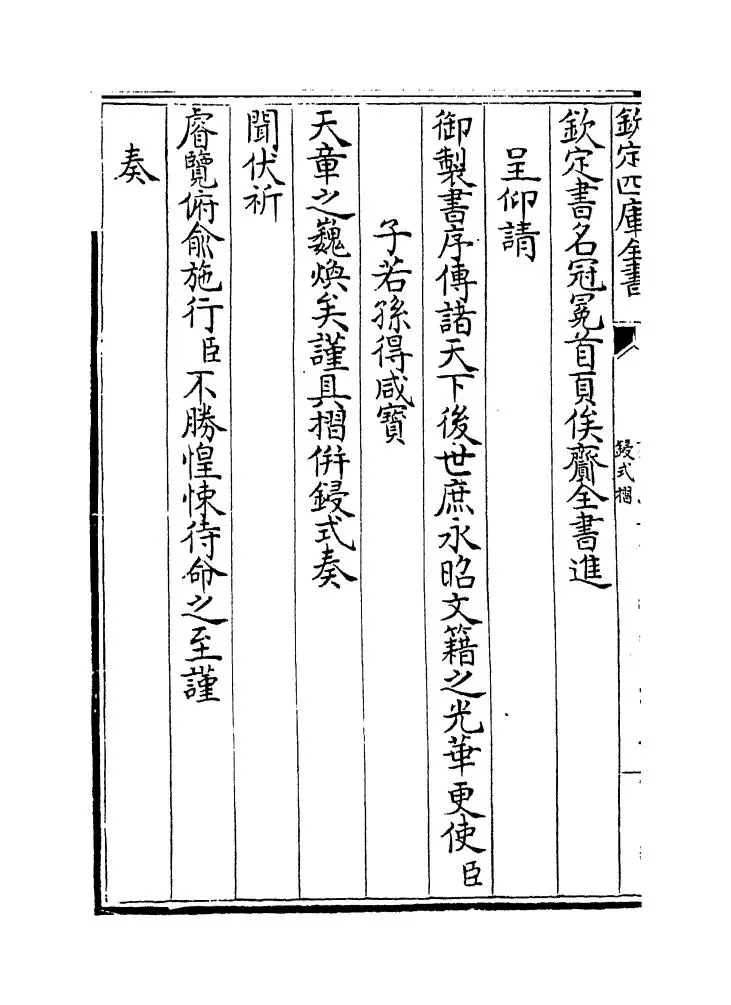 欽定四庫全書
鋟式摺
欽定書名冠冕首頁俟齎全書進
呈仰請
御製書序傳諸天下後世庶永昭文籍之光華更使臣
子若孫得咸寶
天章之巍煥矣謹具摺併鋟式奏
聞伏祈
睿覽俯俞施行臣不勝惶悚待命之至謹
奏